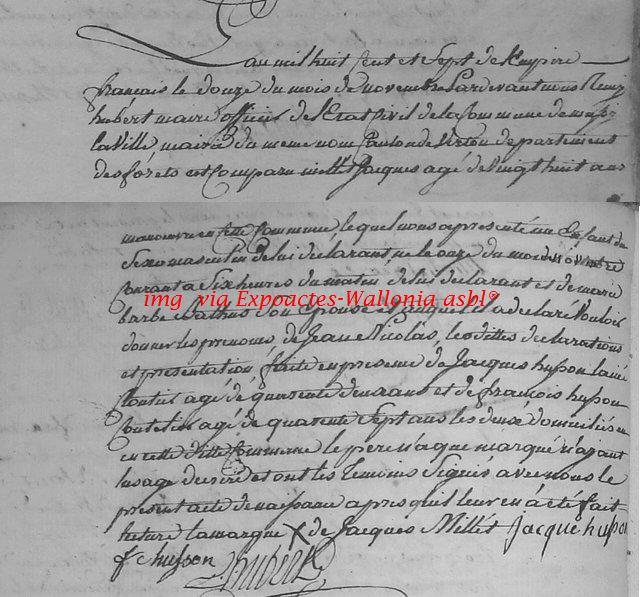 L'an mil huit cent et sept de l'empire
français le douze du mois de novembre Pardevant nous Remy
hubert maire officier de l'Etat Civil de la Commune de
la Ville mairie du meme nom Canton de Virton departement
des forets est Comparu millet Jacques agé de vingt huit ans
manoeuvre en cette Commune, lequel nous a presenté un Enfant du
Sexe masculin de lui déclarant, né le onze du mois de novembre
Courant a Six heures du matin de lui declarant et de marie
barbe Wathus Son Epouse et auquel il a declaré Vouloir
donner les prenoms de Jean Nicolas, les dittes declarations
et presentation faite en presence de Jacques husson lainé
agé de quarente deux ans et de françois husson
agé de quarente Sept ans les deux domiciliés
en cette ditte Commune le pere n'a que marqué n'ajant
lusage decrire et ont les temoins Signés avec nous le
présent acte de naissance apres qu'il leur en a eté fait
lecture la marque X de Jacques Millet Jacque husson
f chusson hubert
img via Expoactes-Wallonia asbl°